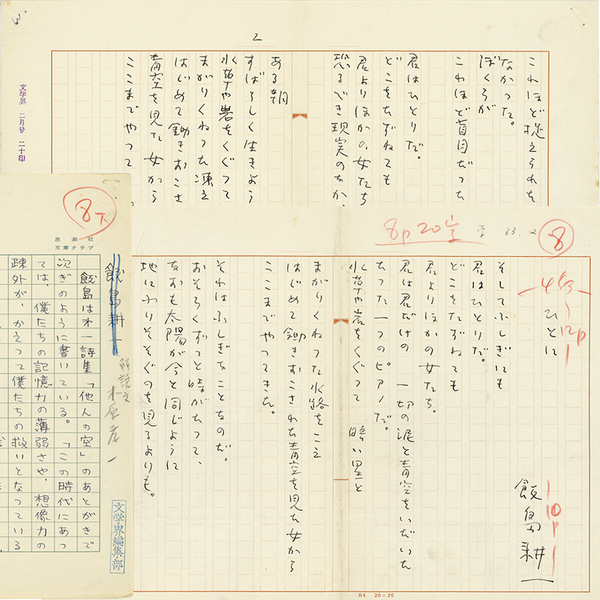 2
これほど捉えられた
なかった。
ぼくらが
これほど盲目だった
君はひとりだ。
どこをたずねても
君よりほかの女たち
恐るべき現実のなか
ある朝
すばらしく生きよう
水草や岩をくぐって
まがりくねった凍え
はじめて鋤きおこさ
青空を見た女から
ここまでやって
文学界 二月分 二十印
8p 20字
33. 2
8
ひとに
12p
飯島耕一
10p
そしてふしぎにも
君はひとりだ。
どこをたずねても
君よりほかの女たち。
君は君だけの 一切の泥と青空をいだいた
たった一つのピアノだ。
水草や岩をくぐって 暗い星と
まがりくねった水路をこえ
はじめて鋤きおこされた青空を見た女から
ここまでやってきた。
それはふしぎなことなのだ。
おそらくずっと時がたって、
なおも太陽が今と同じように
地にふりそそぐのを見るよりも。
B4 20×20
8下
思潮社
文庫クラブ
飯島耕一
解説文
飯島は第一詩集「他人の空」のあとがきで
次ぎのように書いている。「この時代にあっ
ては、僕たちの記憶力の薄弱さや、想像力の
疎外が、かえって僕たちの救いとなっている
文学界編集部